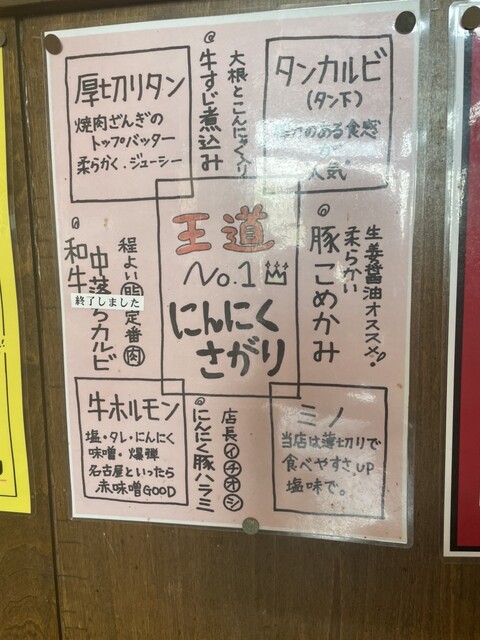 厚切りタン
焼肉ざんぎの
トップバッター
柔らかく、ジューシー
大根とこんにゃく入り
牛すじ煮込み
タンカルビ
(タン下)
のある食感
が
人気
王道
No.1
にんにく
さがり
生姜醤油オススメ!
柔らかい
豚こめかみ
程よい脂定番肉
和牛
中落ちカルビ
終了しました
牛ホルモン
塩・タレ・にんにく
味噌・爆弾
名古屋といったら
赤味噌GOOD
店長イチオシ
にんにく豚ハラミ
ミノ
当店は薄切りで
食べやすさUP
塩味で。